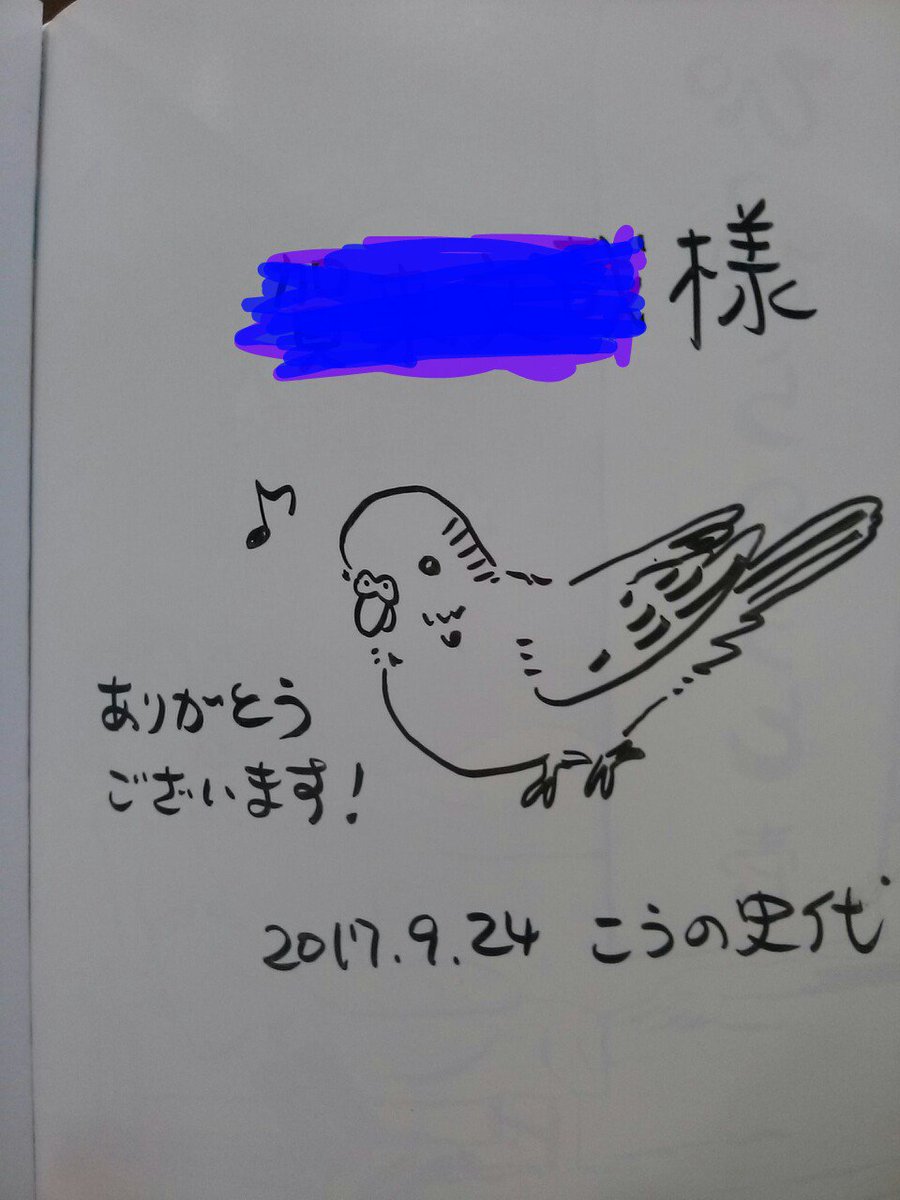 様
ありがとう
ございます!
2017.9.24 こうの史代